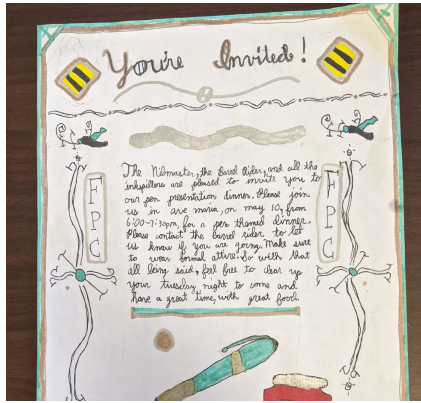 You're Invited!
The Nibmaster, the Barrel Rider, and all the
inkspillers are pleased to invite you to
our pen presentation dinner. Please join
us in ave maria, on may 10, from
6:00-7:30pm, for a pen themed dinner.
Please contact the barrel rider to let
us know if you are going. Make sure
to wear formal attire. So with that
all being said, feel free to clear up
your tuesday night to come and
have a great time, with great food.
FPC
FPC